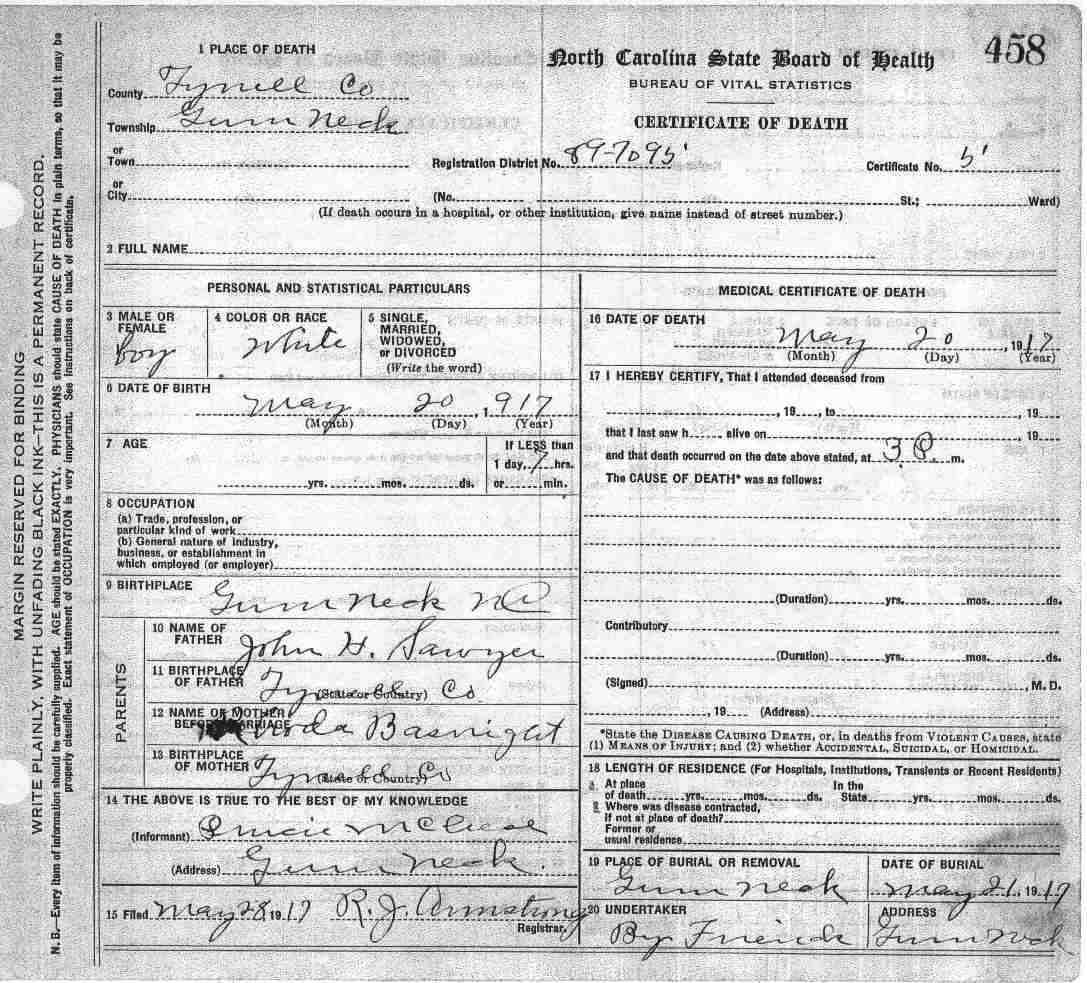 458
North Carolina State Board of Health
BUREAU OF VITAL STATISTICS
CERTIFICATE OF DEATH
1 PLACE OF DEATH
County Tyrrell Co
Township Gum Neck
or
Town
Registration District No. 89-7095
Certificate No. 5
or
City
(No. St.; Ward)
(If death occurs in a hospital, or other institution, give name instead of street number.)
2 FULL NAME
PERSONAL AND STATISTICAL PARTICULARS
3 MALE OR FEMALE
boy
4 COLOR OR RACE
White
5 SINGLE,
MARRIED,
WIDOWED,
or DIVORCED
(Write the word)
6 DATE OF BIRTH
May 20, 1917
(Month) (Day) (Year)
7 AGE
yrs. mos. ds.
If LESS than
1 day, 7 hrs.
or min.
8 OCCUPATION
(a) Trade, profession, or
particular kind of work
(b) General nature of industry,
business, or establishment in
which employed (or employer)
9 BIRTHPLACE
Gum Neck NC
PARENTS
10 NAME OF FATHER
John H. Sawyer
11 BIRTHPLACE OF FATHER
(State or Country)
Tyrrell Co
12 NAME OF MOTHER
BEFORE MARRIAGE
Basnight
13 BIRTHPLACE OF MOTHER
(State or Country)
Tyrrell Co
14 THE ABOVE IS TRUE TO THE BEST OF MY KNOWLEDGE
(Informant)
(Address) Gum Neck.
15 Filed May 28, 1917 R. J. Armstrong
Registrar.
MEDICAL CERTIFICATE OF DEATH
16 DATE OF DEATH
May 20, 1917
(Month) (Day) (Year)
17 I HEREBY CERTIFY, That I attended deceased from
, 19 , to , 19
that I last saw h alive on , 19
and that death occurred on the date above stated, at 3 P. m.
The CAUSE OF DEATH* was as follows:
(Duration) yrs. mos. ds.
Contributory
(Duration) yrs. mos. ds.
(Signed) , M. D.
, 19 (Address)
*State the DISEASE CAUSING DEATH, or, in deaths from VIOLENT CAUSES, state
(1) MEANS OF INJURY; and (2) whether ACCIDENTAL, SUICIDAL, or HOMICIDAL.
18 LENGTH OF RESIDENCE (For Hospitals, Institutions, Transients or Recent Residents)
At place
of death yrs. mos. ds.
In the
State yrs. mos. ds.
Where was disease contracted,
If not at place of death?
Former or
usual residence
19 PLACE OF BURIAL OR REMOVAL
Gum Neck
DATE OF BURIAL
May 21, 1917
20 UNDERTAKER
By Friends
ADDRESS
Gum Neck
MARGIN RESERVED FOR BINDING
WRITE PLAINLY, WITH UNFADING BLACK INK—THIS IS A PERMANENT RECORD.
N. B.—Every item of information should be carefully supplied. AGE should be stated EXACTLY. PHYSICIANS should state CAUSE OF DEATH in plain terms, so that it may be
properly classified. Exact statement of OCCUPATION is very important. See instructions on back of certificate.